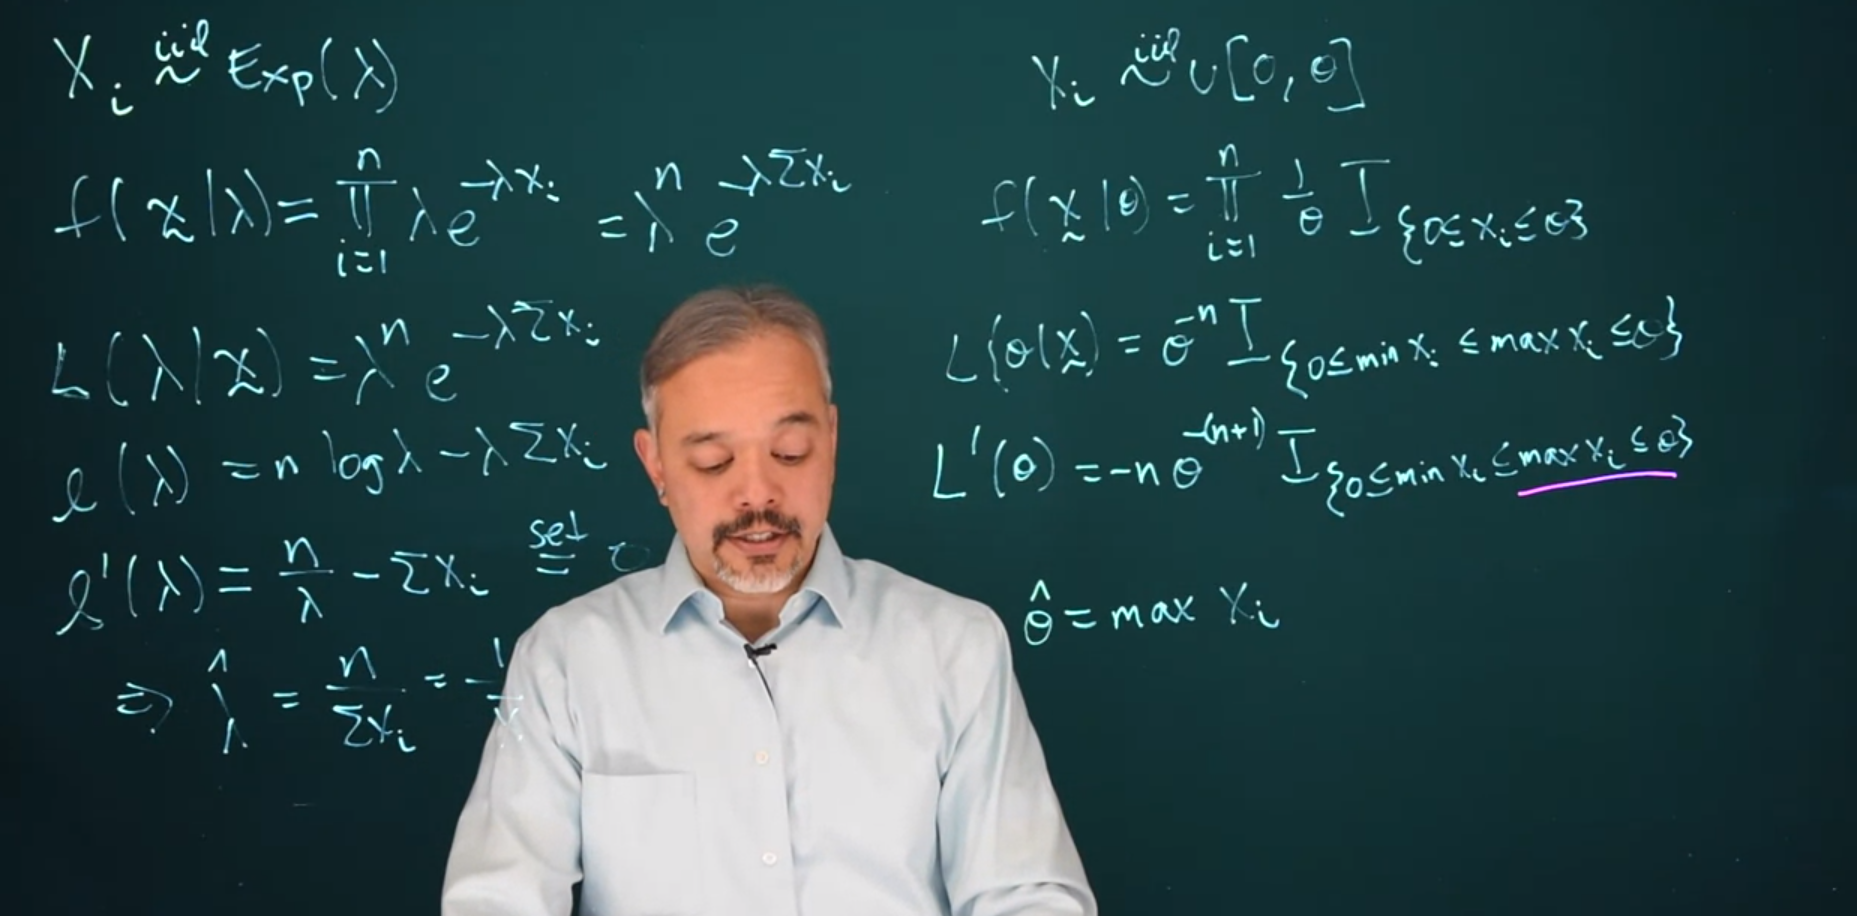 X_i ~^{iid} Exp(λ)
f(x̰|λ) = ∏_{i=1}^{n} λe^{-λx_i} = λ^n e^{-λΣx_i}
L(λ|x̰) = λ^n e^{-λΣx_i}
ℓ(λ) = n log λ - λ Σx_i
ℓ'(λ) = n/λ - Σx_i =^{set} 0
⇒ λ̂ = n/Σx_i = 1/
X_i ~^{iid} U[0, θ]
f(x̰|θ) = ∏_{i=1}^{n} 1/θ I_{{0≤x_i≤θ}}
L{θ|x̰) = θ^{-n} I_{{0≤min x_i ≤ max x_i ≤θ}}
L'(θ) = -nθ^{-(n+1)} I_{{0≤min x_i ≤ max x_i ≤ θ}}
θ̂ = max x_i